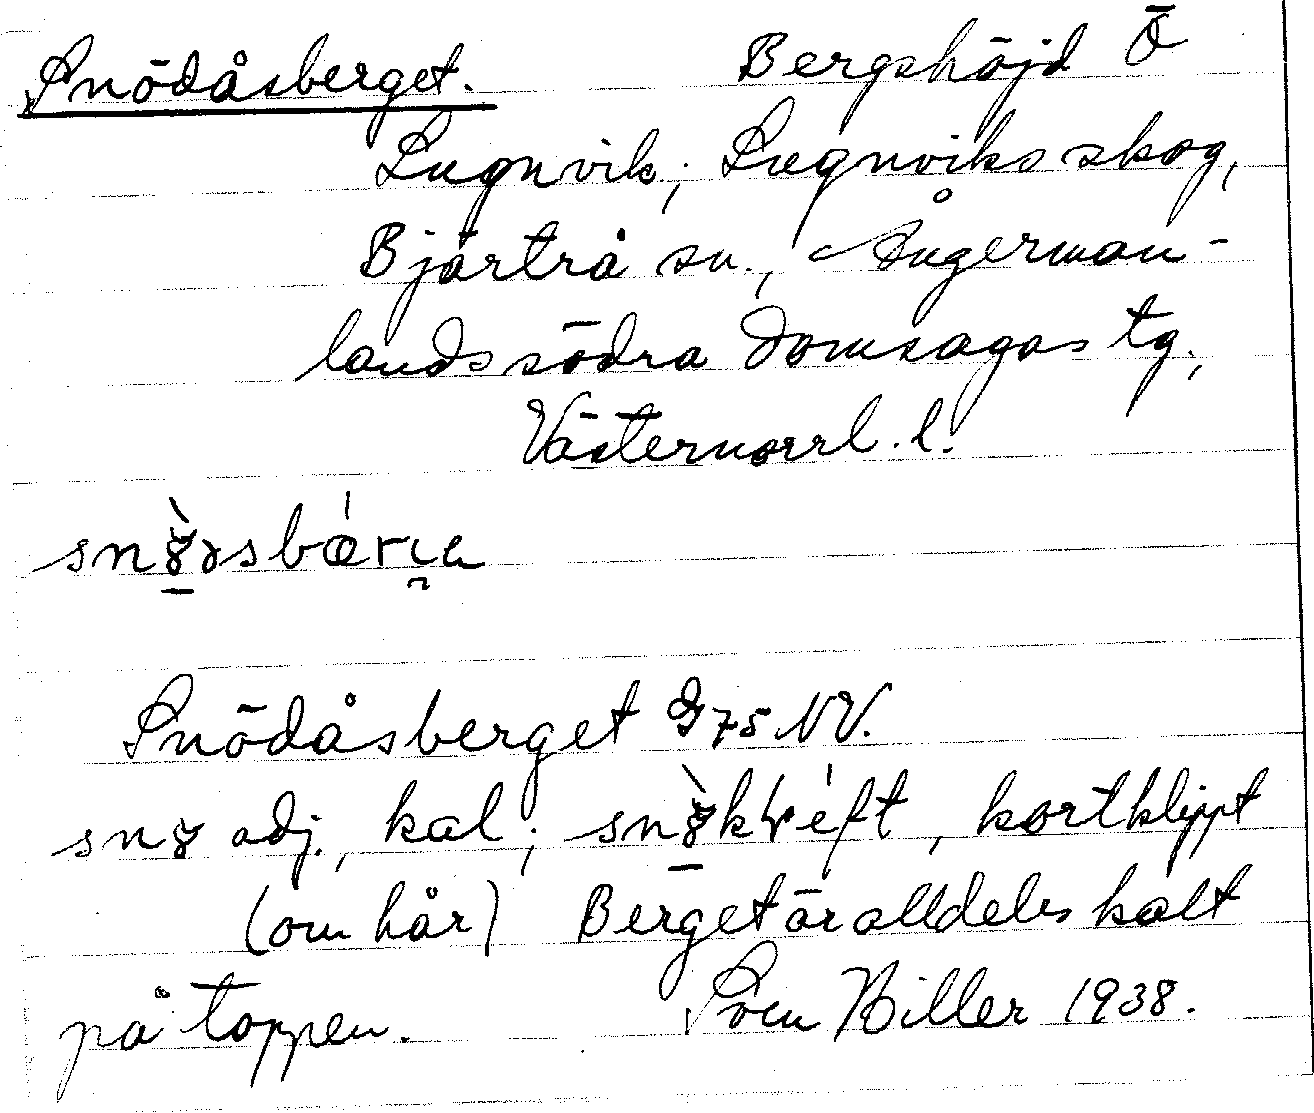 Snödåsberget. Bergshöjd Ö
Lugnvik, Lugnviks skog,
Bjärtrå sn., Ångerman-
lands södra domsagas tg,
Västernorrl. l.
Snödåsberget G75 NV.
adj., kal; , kortklippt
(om hår) Berget är alldeles kalt
på toppen. Sven Hiller 1938.